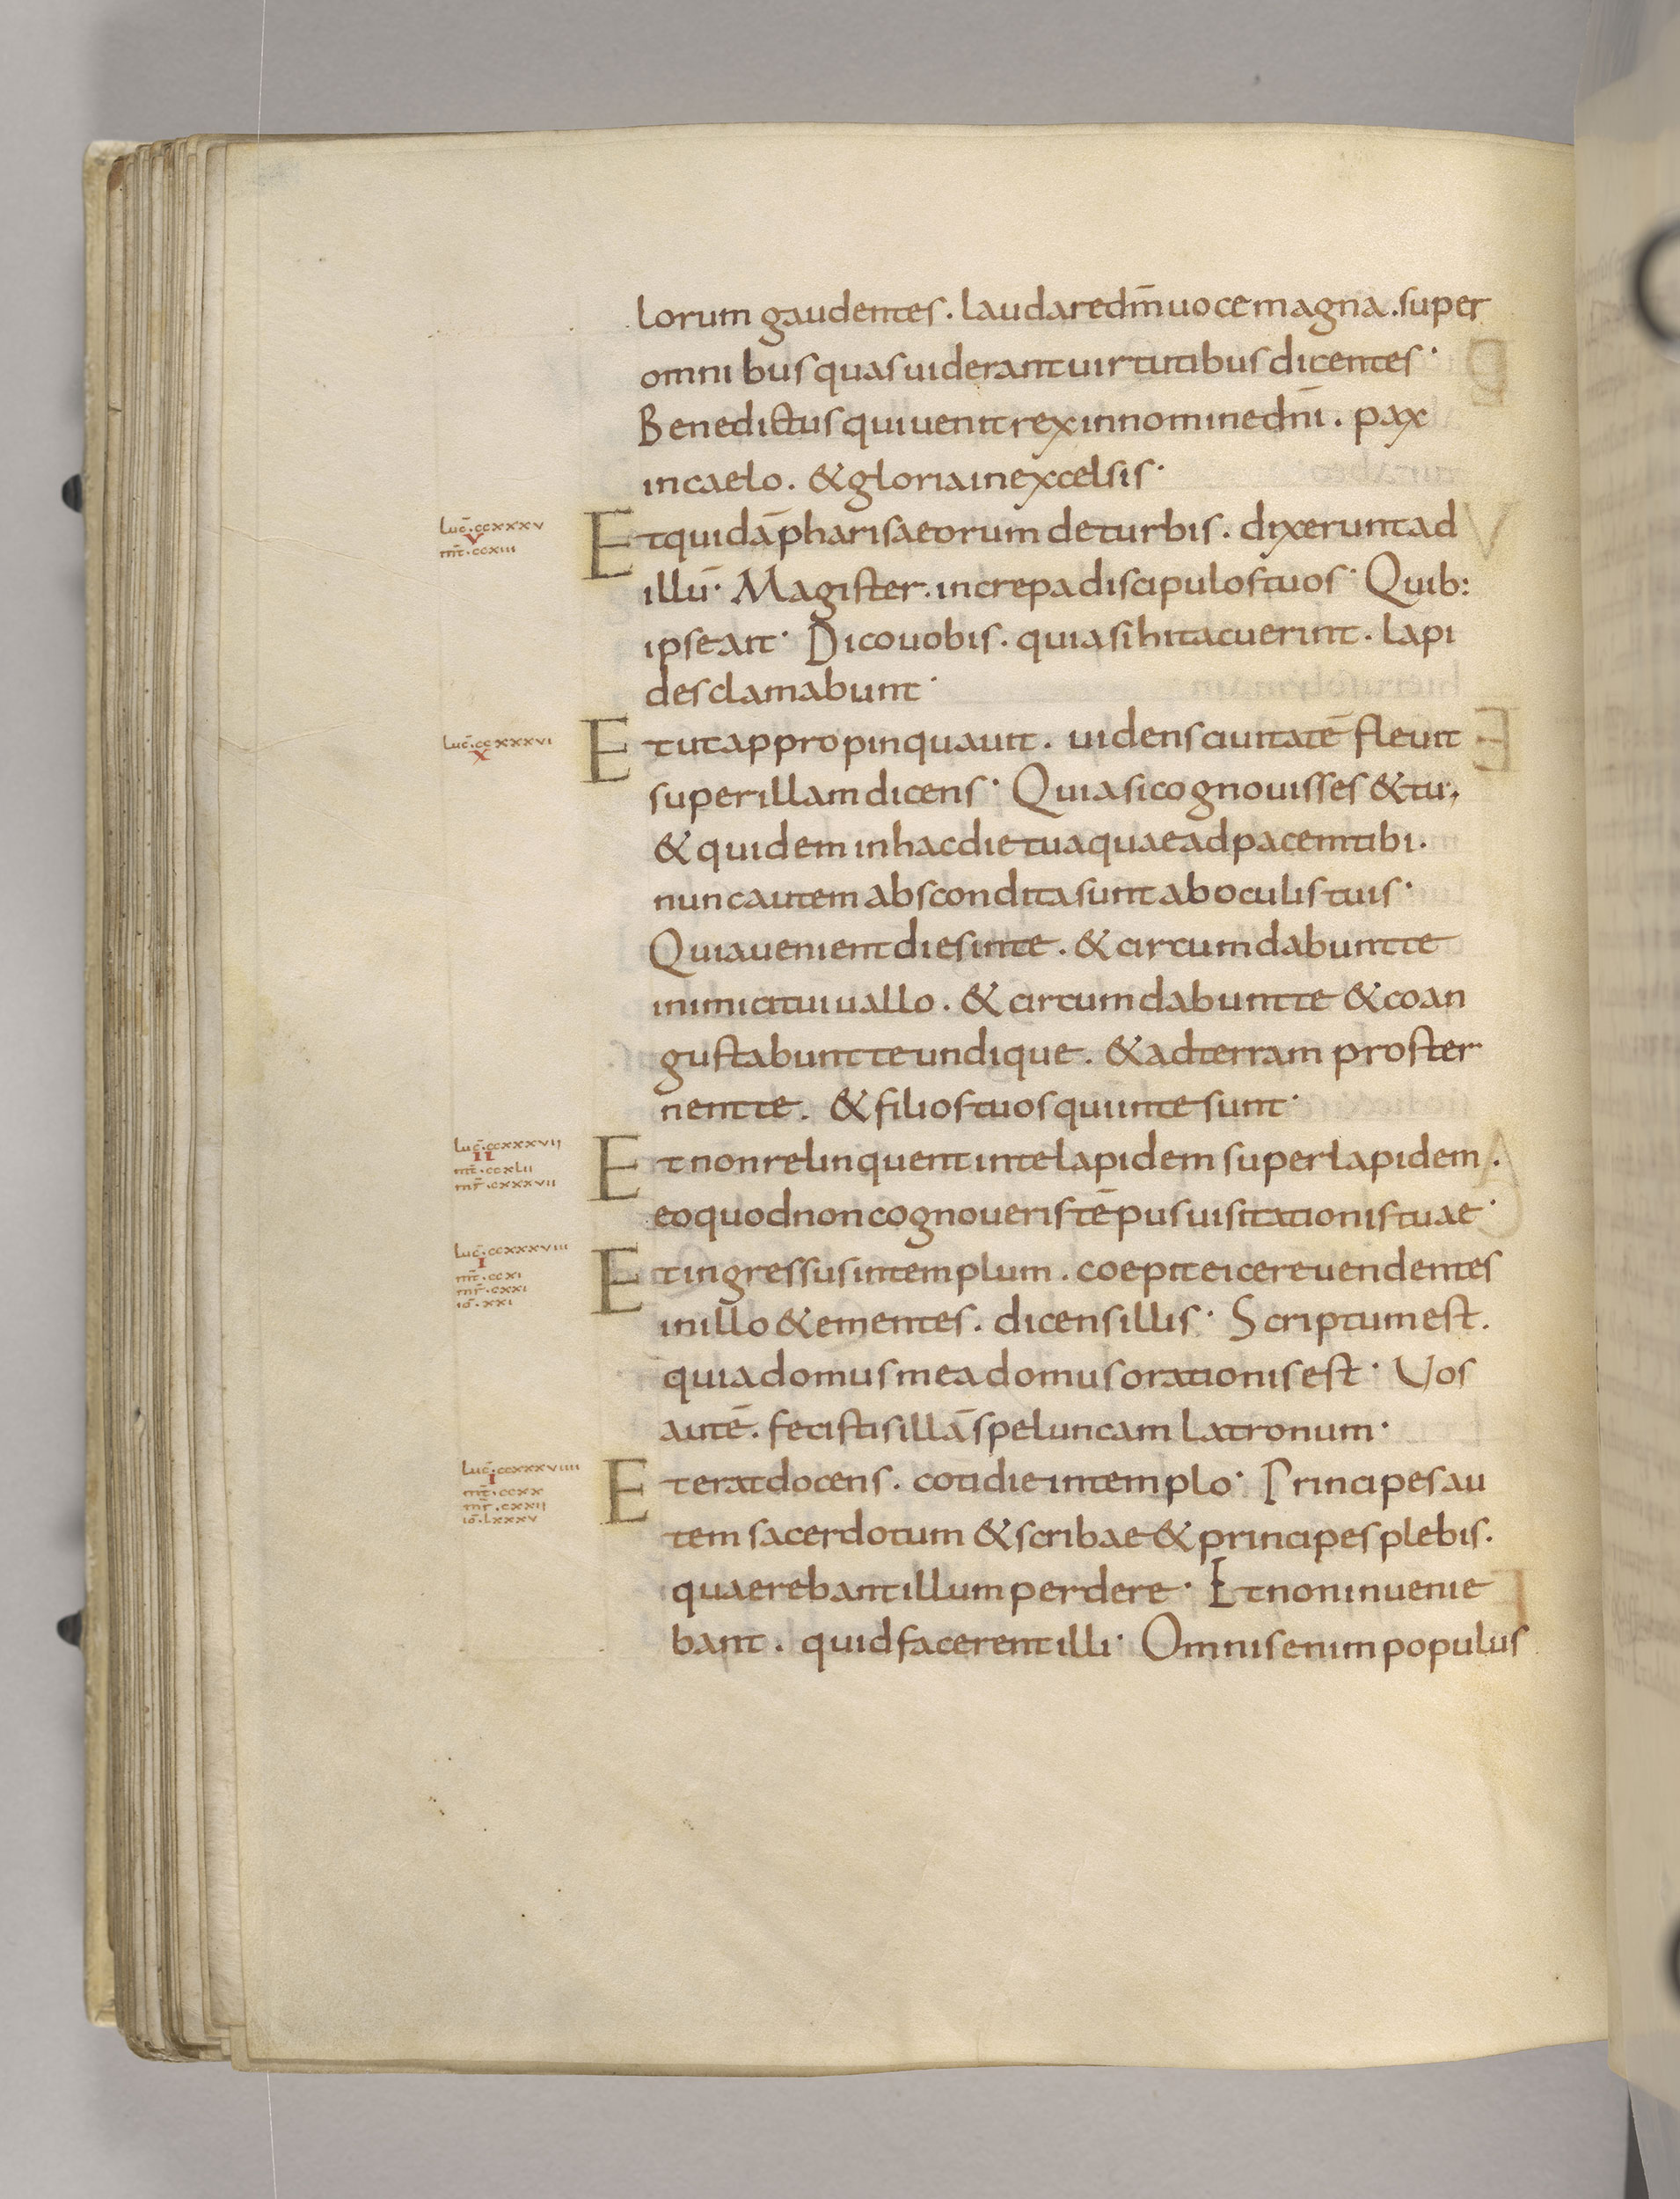 lorum gaudentes. laudare dm̄ uoce magna. super
omnibus quas uiderant uirtutibus dicentes·
Benedictus qui uenit rex in nomine dnī. pax
in caelo. & gloria in excelsis·
Luc̄. ccxxxv
v
mt̄. ccxiii
Et quidā pharisaeorum de turbis. dixerunt ad
illū· Magister. increpa discipulos tuos· Quib:
ipse ait· Dico uobis. quia si hi tacuerint. lapi
des clamabunt·
Luc̄. ccxxxvi
x
Et ut appropinquauit. uidens ciuitatē fleuit
super illam dicens· Quia si cognouisses & tu,
& quidem in hac die tua quae ad pacem tibi.
nunc autem abscondita sunt ab oculis tuis·
Quia uenient dies in te. & circumdabunt te
inimici tui uallo. & circumdabunt te & coan
gustabunt te undique. & ad terram proster
nent te. & filios tuos qui in te sunt·
Luc̄. ccxxxvii
ii
mt̄. ccxlii
mr̄. cxxxvii
Et non relinquent in te lapidem super lapidem.
eo quod non cognoueris tēpus uisitationis tuae·
Luc̄. ccxxxviii
i
mt̄. ccxi
mr̄. cxxi
iō. xxi
Et ingressus in templum. coepit eicere uendentes
in illo & ementes. dicens illis· Scriptum est.
quia domus mea domus orationis est· Vos
autē. fecistis illā speluncam latronum·
Luc̄. ccxxxviiii
i
mt̄. ccxx
mr̄. cxxii
iō. lxxxv
Et erat docens. cotidie in templo· Principes au
tem sacerdotum & scribae & principes plebis.
quaerebant illum perdere· Et non inuenie
bant. quid facerent illi· Omnis enim populus